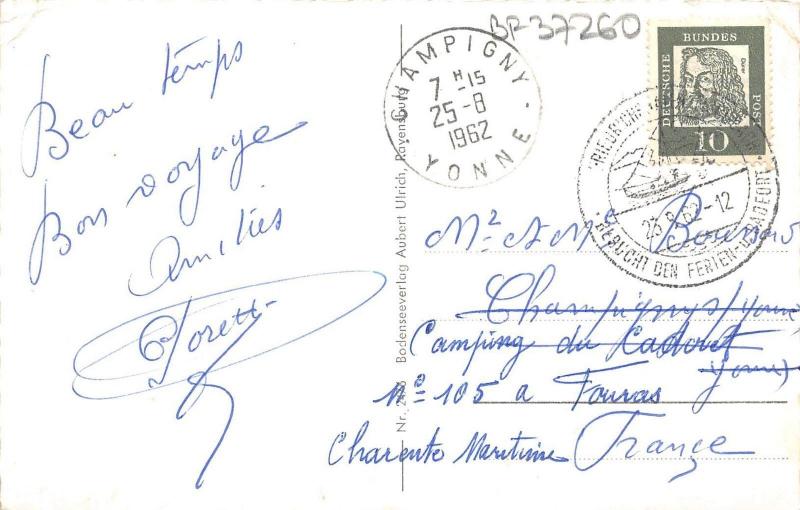 BR37260
Beau temps
Bon voyage
Amitiés
CHAMPIGNY
7 H 15
25-8
1962
YONNE
DEUTSCHE BUNDES POST
Dürer
10
23.8.62-12
BESUCHT DEN FERIEN-
Mr et Mme
Champigny s/ Yonne
(Yonne)
Camping du Cadoret
n° 105 a Fouras
Charente Maritime France
Bodenseeverlag Aubert Ulrich, Ravensburg